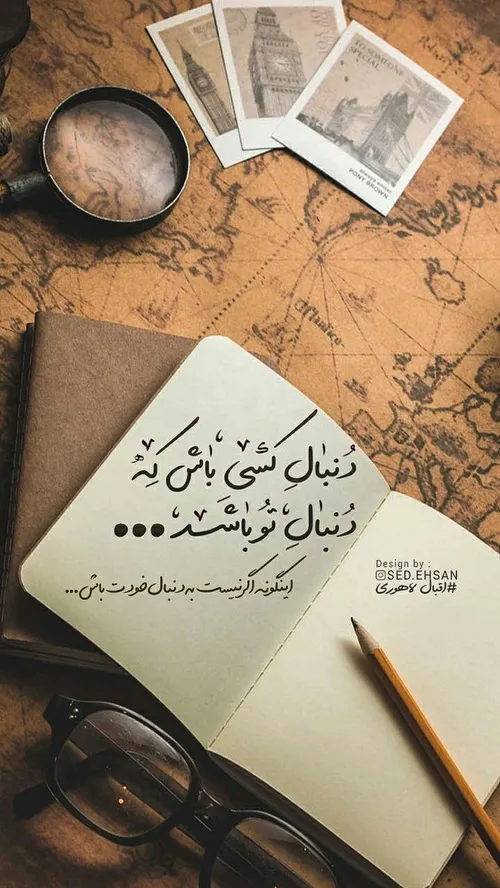 TO SOMEONE
SPECIAL
دُنبالِ کسی باش که
دُنبالِ تُو باشَد...
اینگونه اگر نیست به دنبال خودت باش...
Design by :
SED.EHSAN
#اقبال_لاهوری